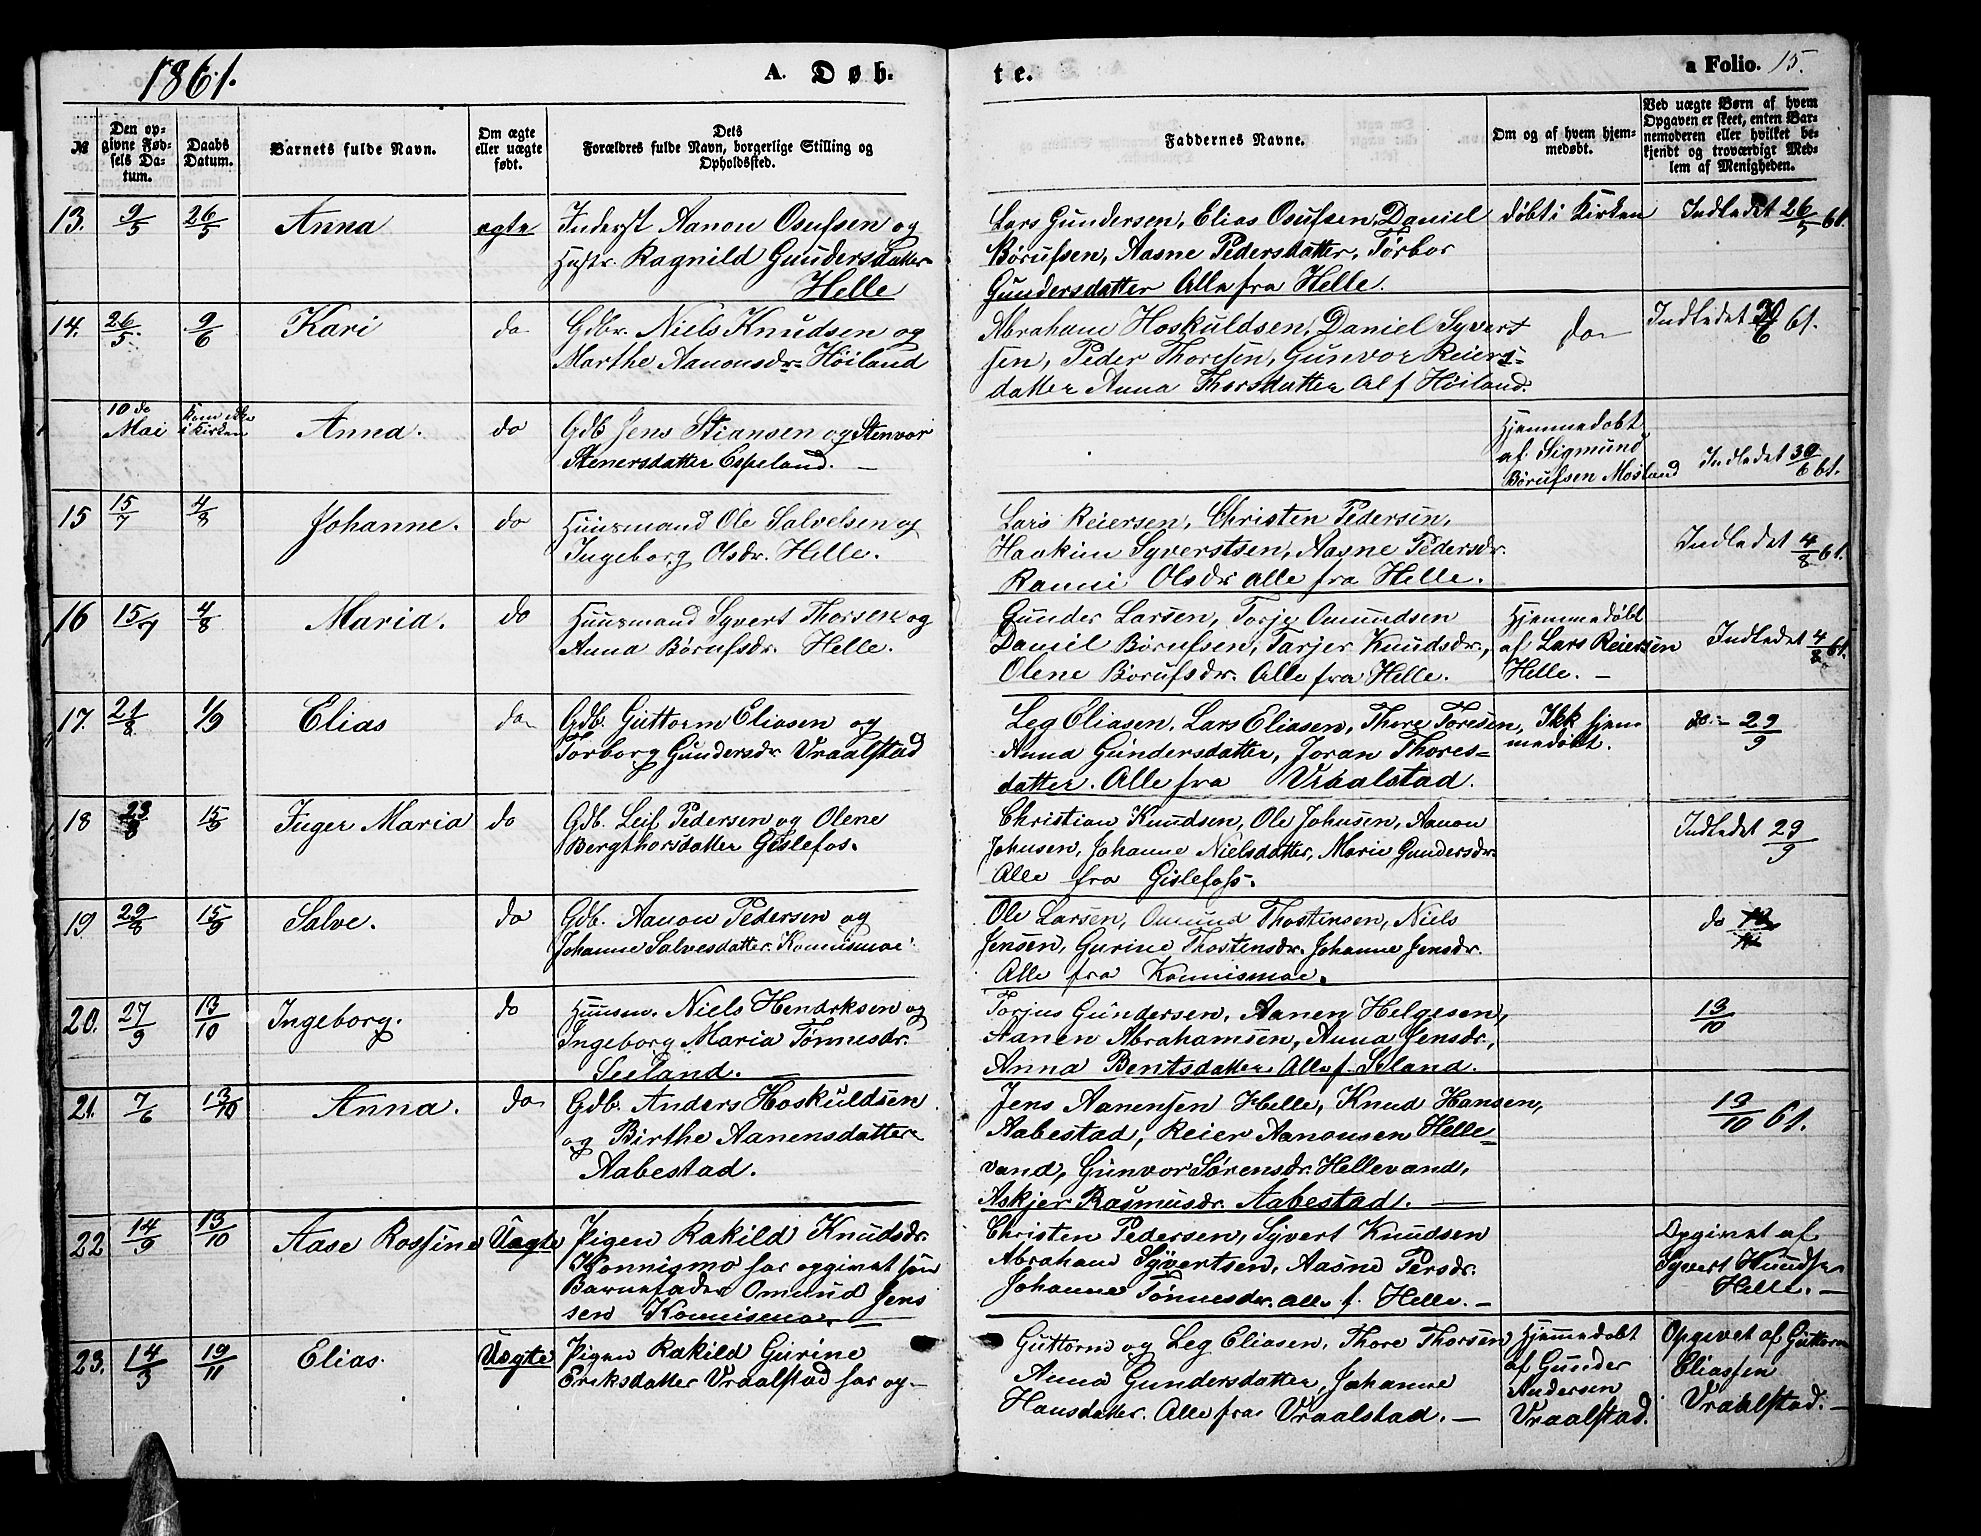 1861.
A. Døb.
te.
a Folio. 15.
№
Den op-
givne Fød-
sels Da-
tum.
Daabs
Datum.
Barnets fulde Navn.
Om ægte
eller uægte
født.
Dets
Forældres fulde Navn, borgerlige Stilling og
Opholdssted.
Faddernes Navne.
Om og af hvem hjem-
medøbt.
Ved uægte Børn af hvem
Opgaven er skeet, enten Bar-
nemoderen eller hvilket be-
kjendt og troværdigt Med-
lem af Menigheden.
13. 9/5 26/5 Anna ægte
Inderst Aanon Osufsen og
Hustr. Ragnild Gundersdatter
Helle
Lars Gundersen, Elias Osufsen, Daniel
Børufsen, Aasne Pedersdatter, Tørbor
Gundersdatter Alle fra Helle.
døbt i Kirken
Indledet 26/5 61.
14. 26/5 9/6 Kari do
Gdbr. Niels Knudsen og
Marthe Aanonsdr. Høiland
Abraham Hoskuldsen, Daniel Syvert
sen, Peder Thoresen, Gunvor Reiers-
datter Anna Thorsdatter Al f Høiland.
do
Indledet 30/6 61.
10de
Mai
Kom ikke
i Kirken
Anna. do
Gdb Jens Stiansen og Stenvor
Stenersdatter Espeland.
Hjemmedøbt
af Sigmund
Børufsen Mosland
Indledet 30/6 61.
15 15/7 4/8 Johanne. do
Huusmand Ole Salvelsen og
Ingeborg Olsdr. Helle.
Lars Reiersen, Christen Pedersen,
Haakim Syvertsen, Aasne Pedersdr.
Ranni Olsdr alle fra Helle.
Indledet 4/8 61.
16 15/7 4/8 Maria. do
Huusmand Syvert Thorsen og
Anna Børufsdr. Helle.
Gunder Larsen, Torje Omundsen
Daniel Børufsen, Tarjer Knudsdr.,
Olene Børufsdr. Alle fra Helle.
Hjemmedøbt
af Lars Reiersen
Helle. —
Indledet 4/8 61.
17. 21/8 1/9 Elias do
Gdb. Guttorm Eliasen og
Torborg Gundersdr Vraalstad
Leg Eliasen, Lars Eliasen, Thore Toresen,
Anna Gundersdatter, Joran Thores-
datter. Alle fra Vraalstad.
Ikk hjem
medøbt.
do — 29/9
18 23/8 15/9 Inger Maria do
Gdb. Leif Pedersen og Olene
Bergthorsdatter Gislefos.
Christian Knudsen, Ole Johnsen, Aanon
Johnsen, Johanne Nielsdatter, Marie Gundersdr.
Alle fra Gislefoss.
Indledet 29/9
19 29/8 15/9 Salve. do
Gdb. Aanon Pedersen og
Johanne Salvesdatter Konnismoe
Ole Larsen, Omund Thostensen, Niels
Jensen, Gurine Thostensdr. Johanne Jensdr.
Alle fra Konnismoe.
do
20. 27/9 13/10 Ingeborg. do
Huusm. Niels Hendrksen og
Ingeborg Maria Tønnesdr.
Seeland.
Torjus Gundersen, Aanen Helgesen,
Aanen Abrahamsen, Anna Jensdr.,
Anna Bentsdatter Alle f. Seland.
13/10
21. 7/6 13/10 Anna. do
Gdb. Anders Hoskuldsen
og Birthe Aanensdatter
Aabestad.
Jens Aanensen Helle, Knud Hansen,
Aabestad, Reier Aanonsen Helle-
vand, Gunvor Sørensdr. Hellevand,
Askjer Rasmusdr. Aabestad.
13/10 61.
22 14/9 13/10 Aase Rossine Uægte
Pigen Rakild Knudsdr.
Konnismo har opgivet som
Barnefader Omund Jens
sen Konnismoe.
Christen Pedersen, Syvert Knudsen
Abraham Syvertsen, Aasne Persdr.
Johanne Tønnesdr. alle f. Helle. —
Opgivet af
Syvert Knudsen
Helle. —
23. 14/3 10/11 Elias. Uægte
Pigen Rakild Gurine
Eriksdatter Vraalstad har op-
Guttorm og Leg Eliasen, Thore Thorsen
Anna Gundersdatter, Johanne
Hansdatter. Alle fra Vraalstad. —
Hjemmedøbt
af Gunder
Andersen
Vraalstad.
Opgivet af Guttorm
Eliassen
Vraalstad. —